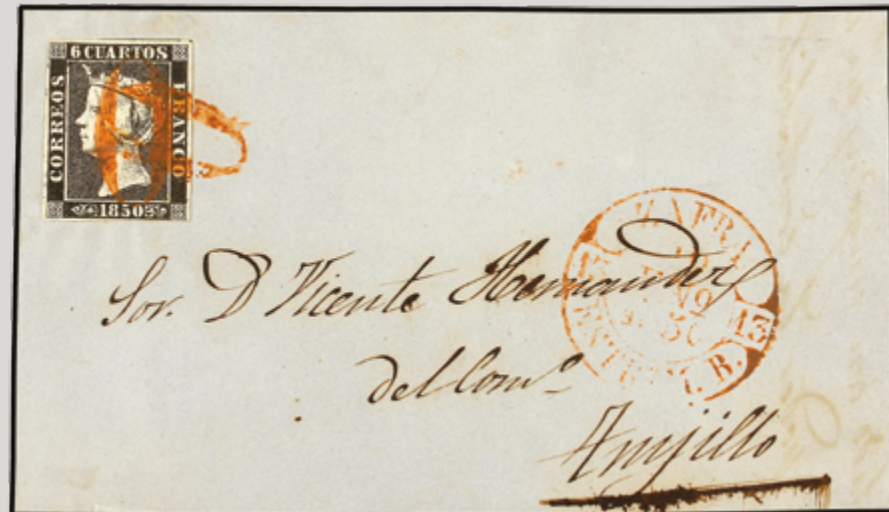 6 CUARTOS
CORREOS
FRANCO
1850
ZAFRA
13
Sor. D Vicente Hernandez
del Comº
Trujillo